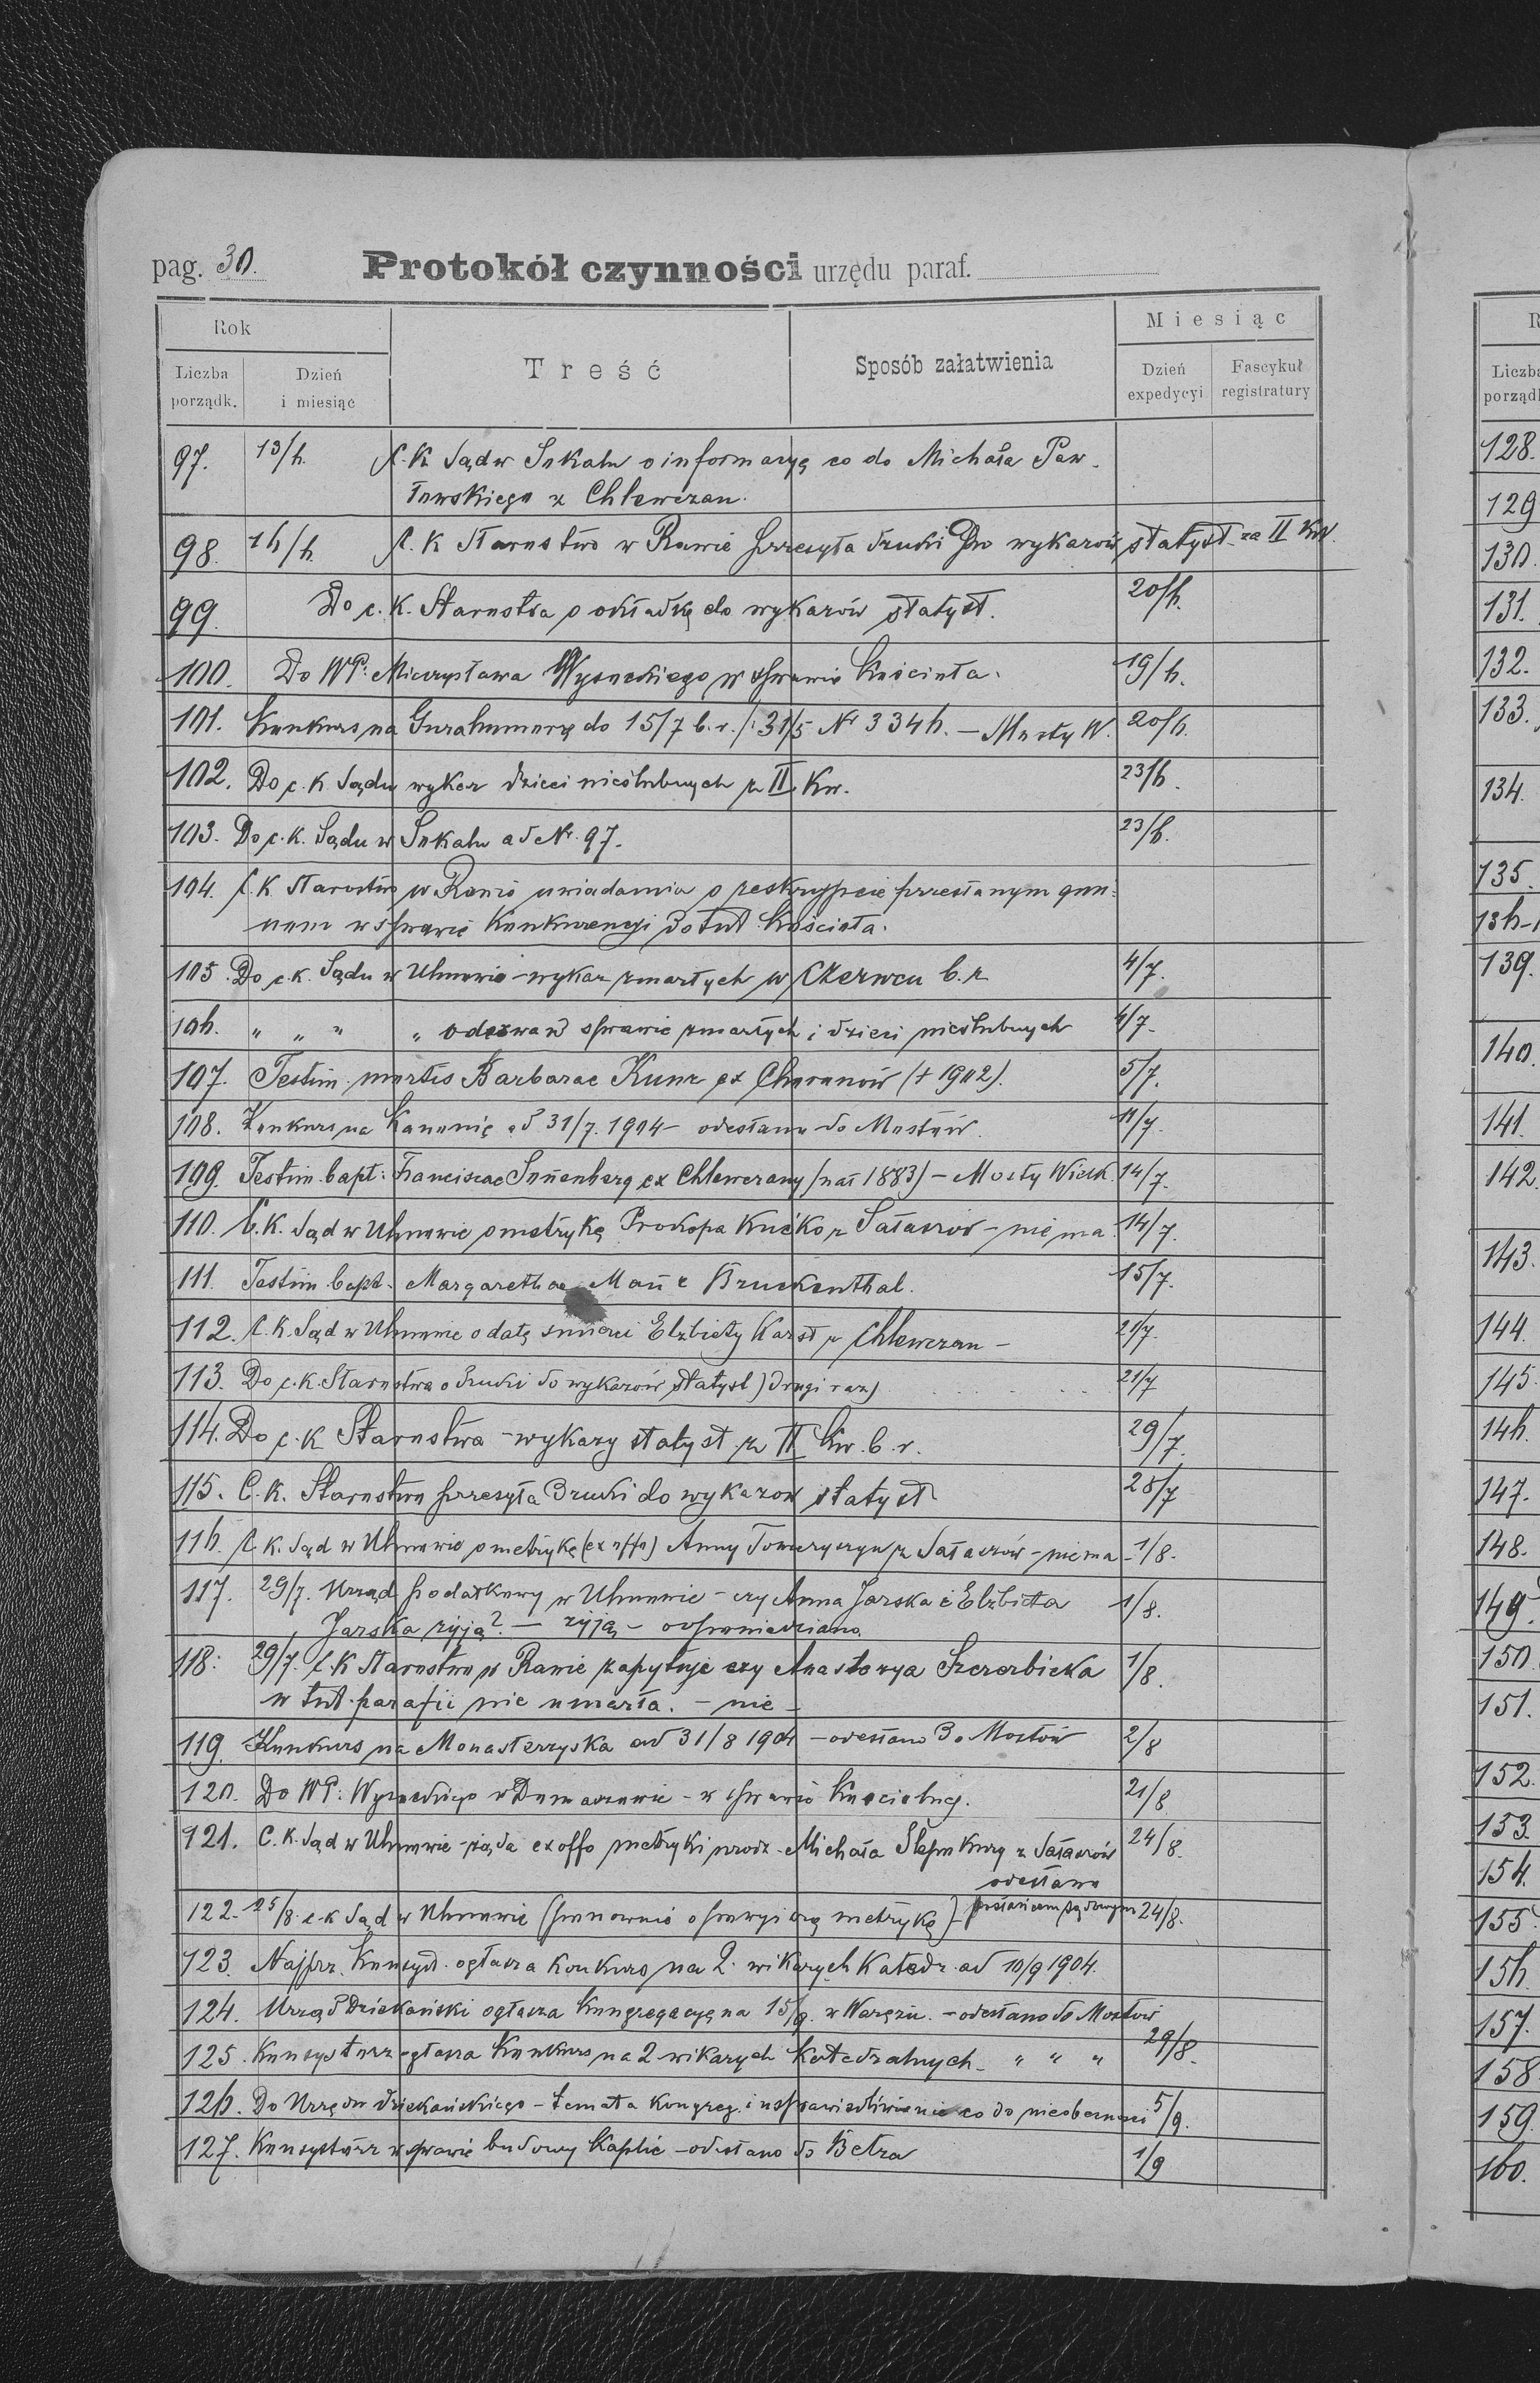 pag. 30. Protokół czynności urzędu paraf.
Rok Treść Sposób załatwienia Miesiąc
Liczba porządk. Dzień i miesiąc Dzień expedycyi Fascykuł registratury
97. 13/6. C. K Sąd w Sokalu o informacyę co do Michała Paw-
łowskiego z Chlewczan.
98. 16/6. C. K Starostwo w Rawie przesyła druki do wykazów statyst. za II Kw.
99. Do c. K. Starostwa o okładkę do wykazów statyst. 20/6.
100. Do WP: Mieczysława Wysockiego w sprawie Kościoła. 19/6.
101. Konkurs na Gurahumorę do 15/7 b. r. /: 31/5 Nr 3346. – Mosty W. 20/6.
102. Do c. K Sądu wykaz dzieci nieślubnych z II. Kw. 23/6.
103. Do c. K. Sądu w Sokalu ad Nr. 97. 23/6.
104. C. K Starostwo w Rawie uwiadamia o reskrypcie przesłanym gmi-
nom w sprawie Konkurencyi do tut. Kościoła.
105. Do c. K. Sądu w Uhnowie – wykaz zmarłych w Czerwcu b. r. 4/7.
106. " " " " odezwa w sprawie zmarłych i dzieci nieślubnych 4/7.
107. Testim. mortis Barbarae Kunz ex Choronów (+ 1902). 5/7.
108. Konkurs na Kanonię ad 31/7. 1904 – odesłano do Mostów. 11/7.
109. Testim. bapt: Franciscae Sonenberg ex Chlewczany /nat 1883/ – Mosty Wielk. 14/7.
110. C. K. Sąd w Uhnowie o metrykę Prokopa Kućko z Sałaszów – nie ma. 14/7.
111. Testim. bapt. Margarethae Man e Bruckenthal. 15/7.
112. C. K. Sąd w Uhnowie o datę śmierci Elżbiety Karst z Chlewczan – 21/7.
113. Do c. K. Starostwa o druki do wykazów statyst) drugi raz) 21/7
114. Do c. K Starostwa – wykazy statyst. z II Kw. b. r. 29/7.
115. C. K. Starostwo przesyła druki do wykazów statyst 28/7
116. C. K. Sąd w Uhnowie o metrykę (ex offo) Anny z Sałaszów – nie ma – 1/8.
117. 29/7. Urząd podatkowy w Uhnowie – czy Anna Jarska i Elżbieta 1/8.
Jarska żyją? – żyją – odpowiedziano.
118: 29/7. C. K Starostwo w Rawie zapytuje czy Anastazya Szczerbicka 1/8.
w tut. parafii nie umarła. – nie –
119. Konkurs na Monasterzyska ad 31/8 1904 – odesłano do Mostów 2/8
120. Do WP: Wysockiego w Domaszowie – w sprawie Kościelnej. 21/8
121. C. K. Sąd w Uhnowie żąda ex offo metryki urodz. Michała z Sałaszów 24/8.
odesłano
122. 25/8. c. K Sąd w Uhnowie (ponownie o powyższą metrykę) – posłańcem sądowym 24/8.
123. Najprz. Konsyst. ogłasza Konkurs na 2. wikarych Katedr. ad 10/9 1904.
124. Urząd Dziekański ogłasza Kongregacyę na 15/9. w Warężu. – odesłano do Mostów
125. Konsystorz ogłasza Konkurs na 2 wikarych Katedralnych – " " " 29/8.
126. Do Urzędu dziekańskiego – temata Kongreg. i usprawiedliwienie co do nieobecności 5/9.
127. Konsystorz w sprawie budowy Kaplic – odesłano do Bełza 1/9
R
Liczba
porządk
128.
129
130.
131.
132.
133.
134.
135.
136-1
139.
140.
141.
142
143.
144.
145.
146.
147.
148.
149.
150.
151.
152.
153.
154.
155.
156.
157.
158.
159.
160.